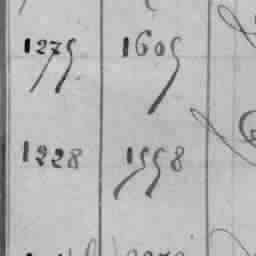 1275 1605
1228 1558